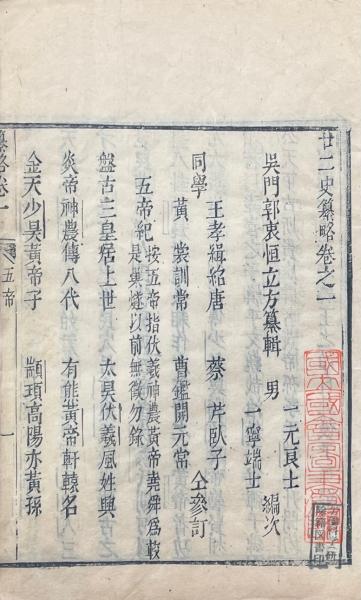 廿二史纂略卷之一
吳門郭衷恒立方纂輯 男 一元良士 一寧端士 編次
同學 王孝緝紹唐 蔡 芹臥子 黃 裳訓常 曹鑑開元常 仝參訂
五帝紀 按五帝指伏羲神農黃帝堯舜爲 是 以前無徵勿錄
盤古三皇居上世 太昊伏羲風姓興
炎帝神農傳八代 有熊黃帝軒轅名
金天少昊黃帝子 顓頊高陽亦黃孫
纂略卷一 五帝 一